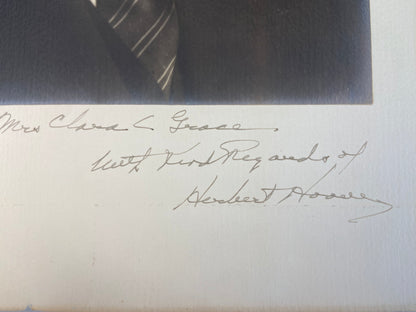 Mrs Clara L Grace.
With Kind Regards of
Herbert Hoover